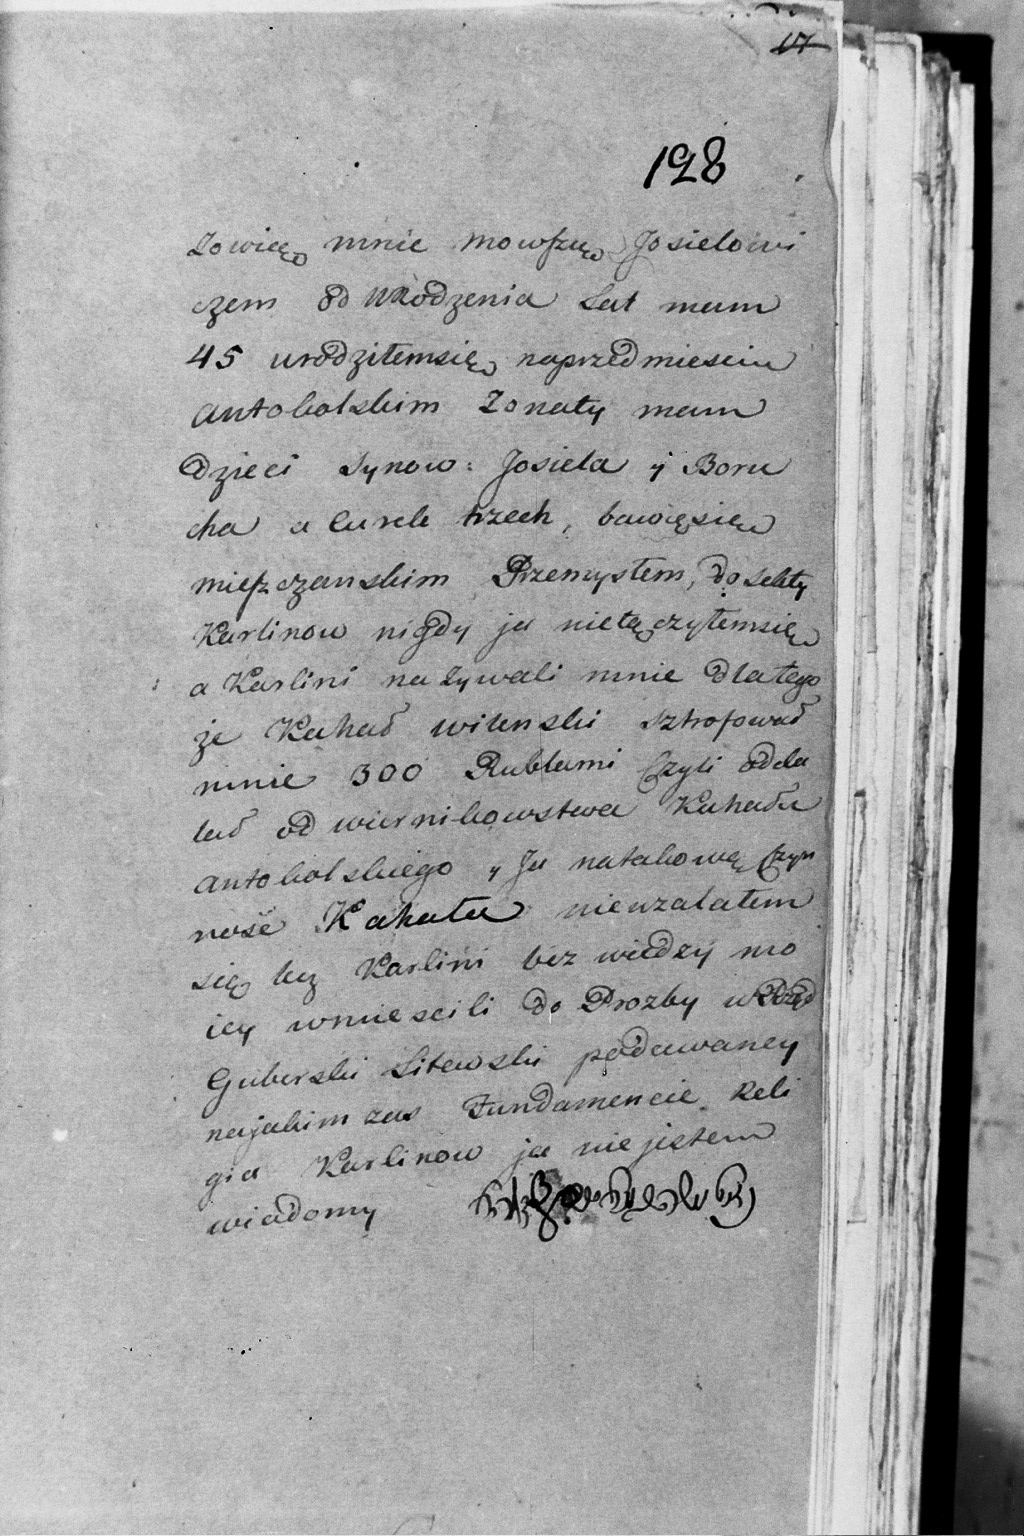 17
128
Zowią mnie Mowszą Josielowi
czem od urodzenia Lat mam
45 urodziłemsię naprzedmiesciu
Antokolskim Zonaty mam
dzieci Synow: Josiela y Boru
cha a Curek trzech, bawięsię
mieszczanskim Przemysłem, do sekty
Karlinow nigdy ja niełączyłemsię
a Karlini nazywali mnie dlatego
że Kahał wilenski sztrofował
mnie 300 Rublami czyli odda
lał od wiernikowstwa Kahału
antokolskiego y Ja natakową czyn
ność Kahału nieużalałem
się lecz Karlini bez wiedzy mo
iey wniescili do Prozby w Rząd
Guberski Litewski podawaney
najakim zas Fundamencie Reli
gia Karlinow ja nie jestem
wiadomy